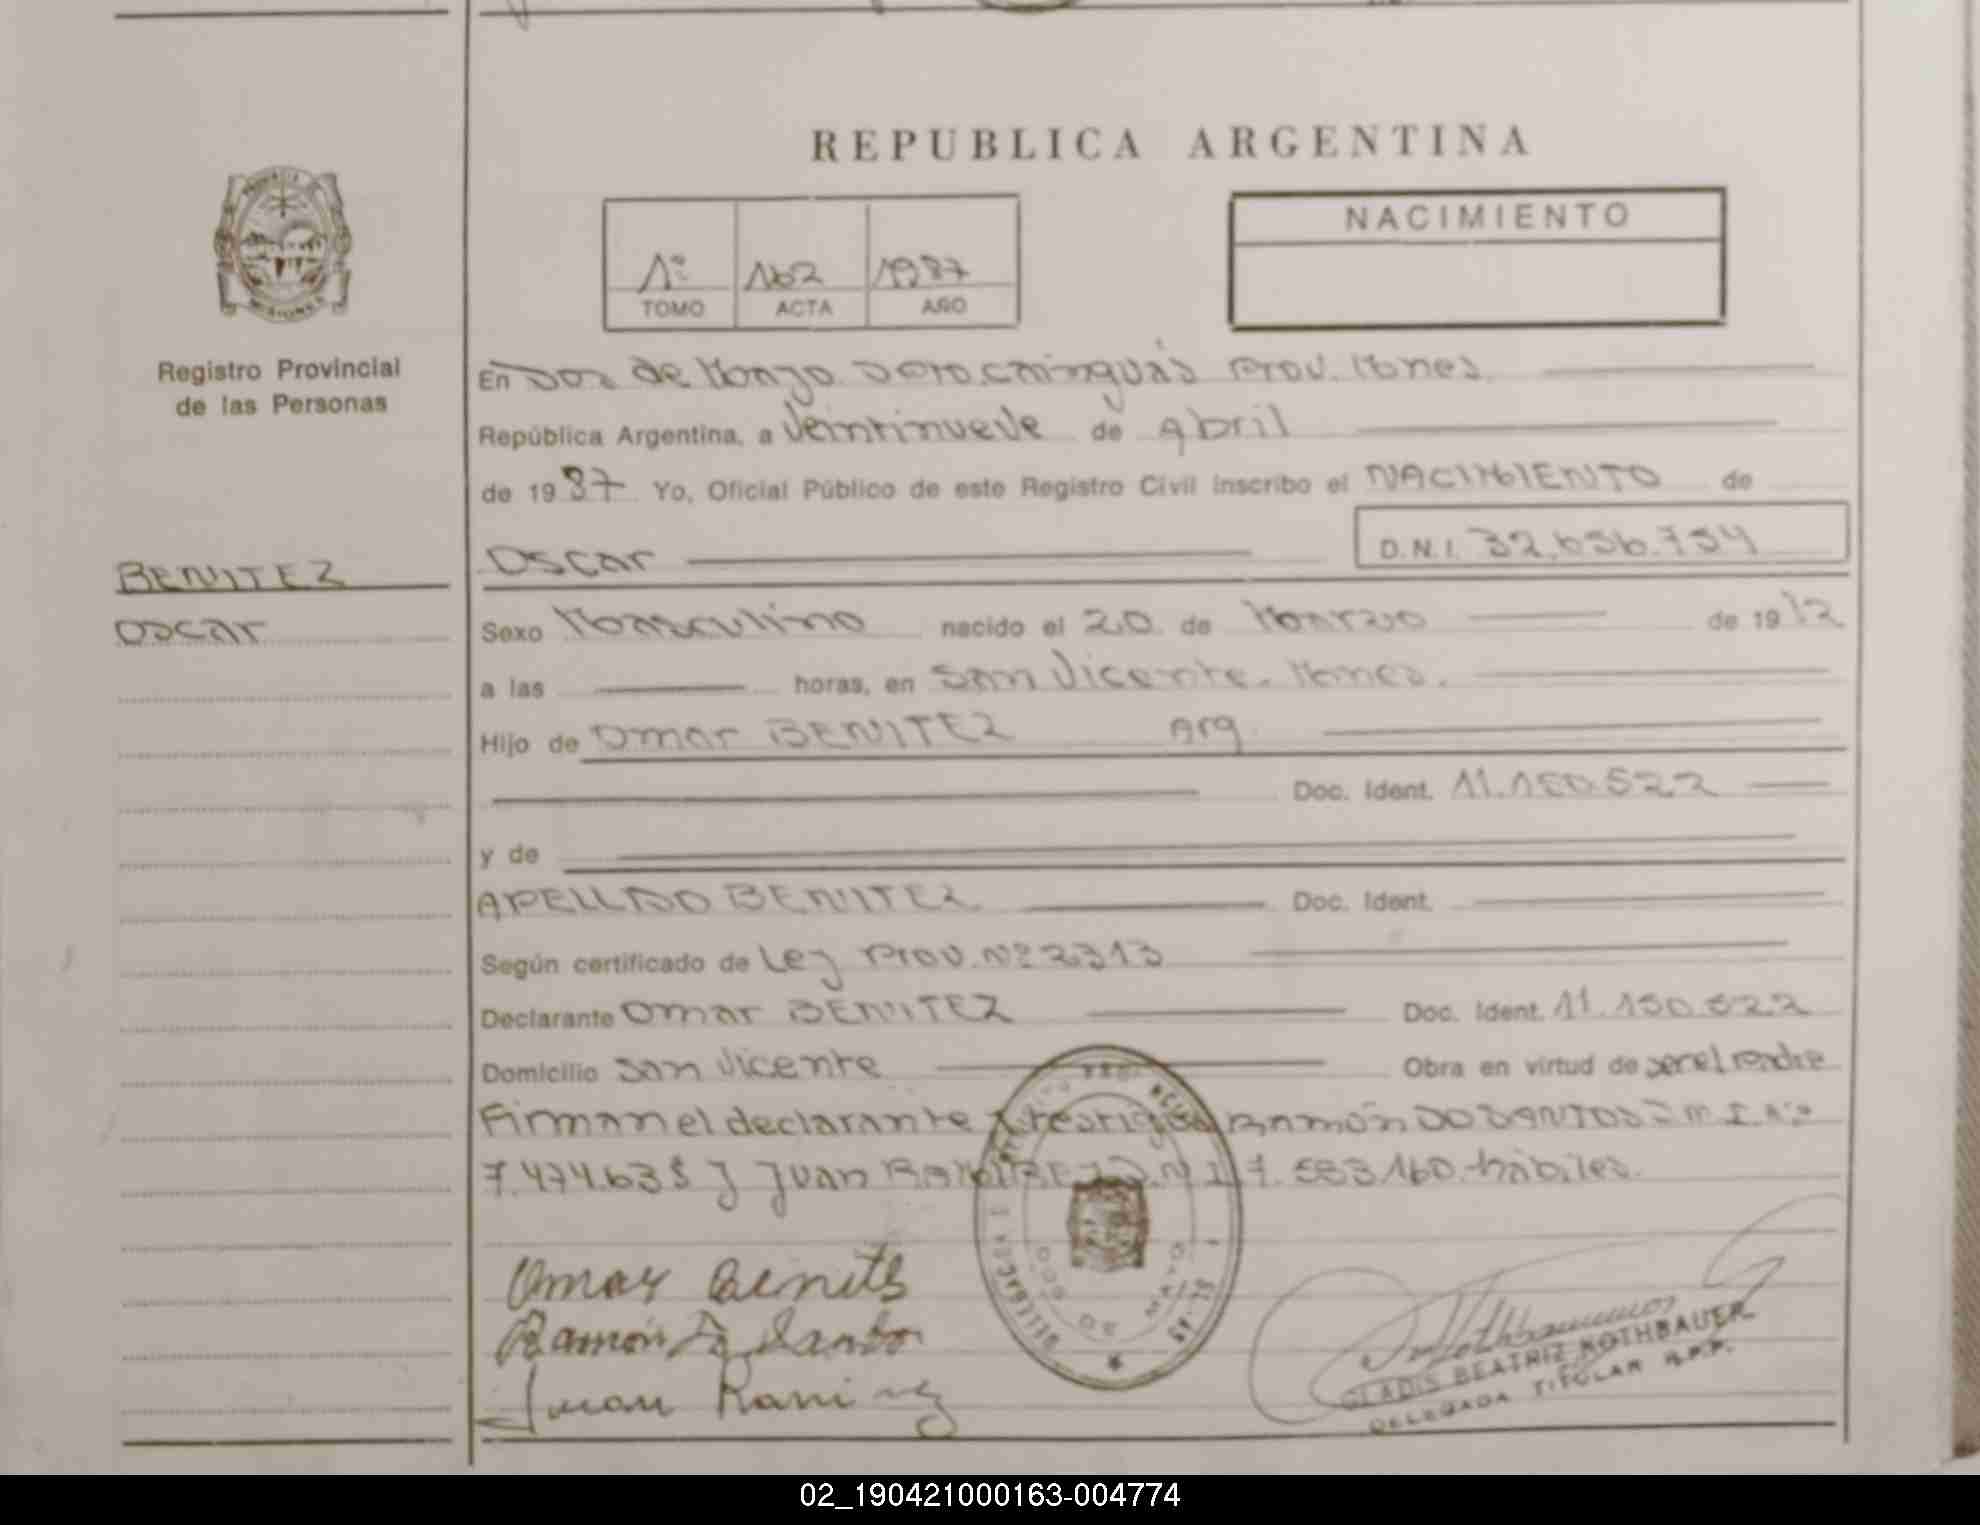 REPUBLICA ARGENTINA
NACIMIENTO
1º 162 1987
TOMO ACTA AÑO
Registro Provincial
de las Personas
En Dos de Mayo Dpto. Cainguás Prov. Mnes.
República Argentina, a Veintinueve de Abril
de 1987 Yo, Oficial Público de este Registro Civil inscribo el NACIMIENTO de
BENITEZ
Oscar
Oscar D.N.I. 32.656.754
Sexo Masculino nacido el 20 de Marzo de 19
a las horas, en San Vicente. Mnes.
Hijo de Omar BENITEZ Arg.
Doc. Ident. 11.150.522
y de
APELLIDO BENITEZ Doc. Ident.
Según certificado de Ley Prov. Nº 2313
Declarante Omar BENITEZ Doc. Ident. 11.150.522
Domicilio San Vicente Obra en virtud de ser el Padre
Firman el declarante y testigos Ramón DO SANTOS M.I.Nº
7.474.635 y Juan RAMIREZ D.N.I 7.583.160. hábiles.
Omar Benites
Ramón D Santos
Juan Ramirez
GLADIS BEATRIZ ROTHBAUER
DELEGADA TITULAR R.P.P.
02_190421000163-004774